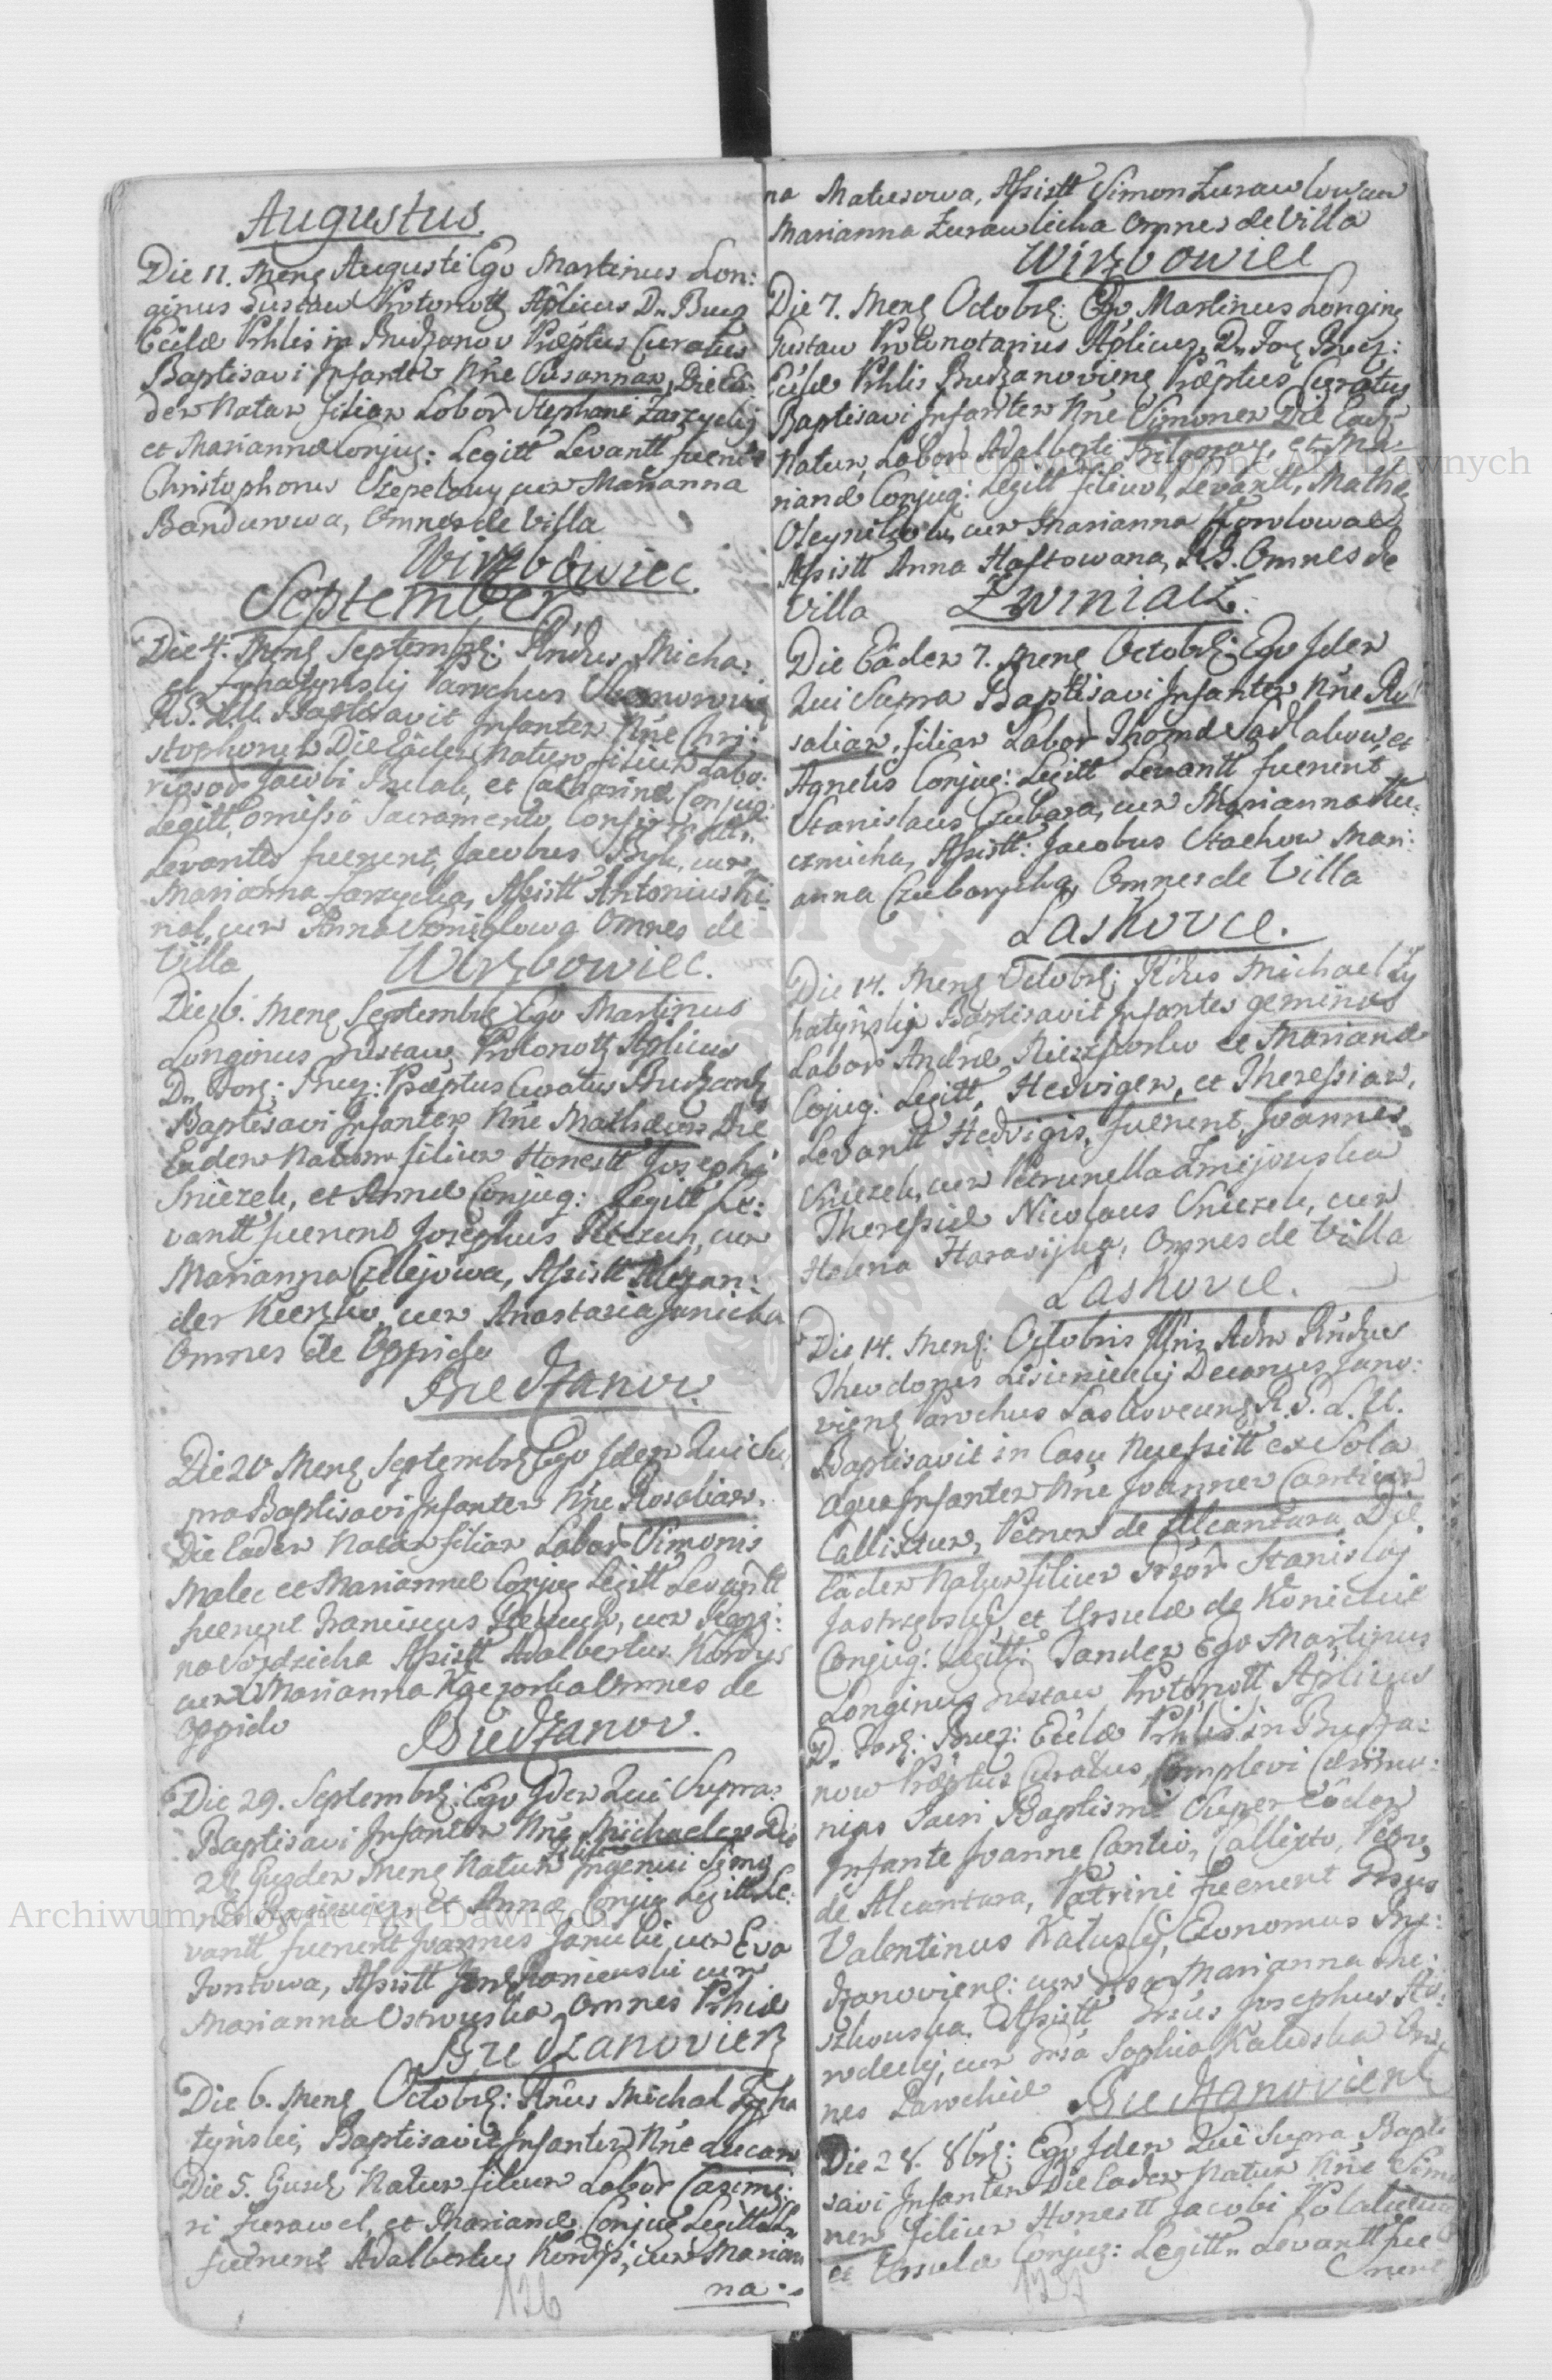 Augustus.
Die 11. Mens Augusti Ego Martinus Lon:
ginus Gustaw Protonott Aplicus D. Bucz
Ecclæ Prhlis in Budzanov Præptus Curatus
Baptisavi Infantem Nñe Susannam, Die Eâ
dem Natam filiam Labor Stephani Zarzycky
et Mariannæ Conjug: Legitt Levantt fuerūt
Christophorus Czepelowy cum Marianna
Bandurowa, Omnes de Villa
Wirzbowiec.
September
Die 4. Mens Septembr: Rñdus Micha:
el Parochus
R.G. L.U. Baptisavit Infantem Nñe Chri:
stophorum Die Eâdem Natum filium Labo:
riosor Jacobi et Catharinæ Conjug:
Legitt, Omisso Sacramento
Levantes fuerunt, Jacobus Byk, cum
Marianna Zarzycka, Assistt Antonius
nal, cum Anna Smiglowa Omnes de
Villa Wirzbowiec.
Die 16. Mens Septembr Ego Martinus
Longinus Gustaw, Protonott Aplicus
D. For: Bucz: Præptus Curatus Budzan
Baptisavi Infantem Nñe Mathæum Die
Eadem Natum filium Honestt Josephi
Sniezek, et Annæ Conjug: Legitt Le:
vantt fuerunt Josephus cum
Marianna Czelejowa, Assistt Alexan:
der Kuczko, cum Anastasia Janicka
Omnes de Oppido
Budzanov.
Die 20 Mens Septembr Ego Idem Qui Su
pra Baptisavi Infantem Nñe Rosaliam.
Die Eadem Natam filiam Labor Simonis
Malec et Mariannæ Conjug Legitt Levantt
fuerunt Franciscus cum
Assistt Adalbertus Kordys
cum Marianna Omnes de
Oppido Budzanov.
Die 29. Septembr: Ego Idem Qui Supra
Baptisavi Infantem Nñe Michaelem Die
28 Ejusdem Mens Natum filium Ingenui Simo
nis et Annæ Conjug Legitt Le:
vantt fuerunt Joannes Janicki cum Eva
Fontowa, Assistt cum
Marianna Ostrowska, Omnes Prhiæ
Budzanoviens
Die 6. Mens Octobr: Rñdus Michal Tyha
tynski, Baptisavit Infantem Nñe Lucam
Die 5. Ejusd Natum filium Labor Casimi:
ri Zurawel, et Marianæ Conjug Legitt L
fuerunt Adalbertus Kordys, cum Marian
na
126
na Matusowa, Assistt Simon Zurawlow cum
Marianna Zurawlicha Omnes de Villa
Wirzbowiec
Die 7. Mens Octobr: Ego Martinus Longing
Gustaw Protonotarius Aplicus, D. For Bucz:
Ecclæ Prhlis Budzanoviens Præptus Curatus
Baptisavi Infantem Nñe Simonem Die Ead
Natum, Labor Adalberti et Ma:
rianæ Conjug: Legitt filium, Levantt, Mathæ
Oleynikow, cum Marianna
Assistt Anna Haftowana, R.G. Omnes de
Villa Zwiniacz.
Die Eâdem 7. Mens Octobr: Ego Idem
Qui Supra Baptisavi Infantem Nñe Ro
saliam, filiam Labor Thomæ Sadlakow, et
Agnetis Conjug: Legitt Levantt fuerunt
Stanislaus Czubara, cum Marianna Ku:
czmicha, Assistt: Jacobus Stachow Mari:
anna Czubarycha, Omnes de Villa
Laskovce.
Die 14. Mens Octobr: Rñdus Michael Ty
hatynsky Baptisavit Infantes geminos
Labor Andræ et Marianæ
Cojug: Legitt, Hedvigem, et Theressiam,
Levantt Hedvigis, fuerunt, Joannes
Sniezek, cum Petrunella Zmijowska
Theressiæ Nicolaus Sniezek, cum
Helena Harasijka, Omnes de Villa
Laskovce.
Die 14. Mens: Octobris Illris Adm Rñdus
Theodorus Decanus Jano:
viens Parochus Laskovcens R. G. L. U.
Baptisavit in Casu Necessitt ex Sola
aqua Infantem Nñe Joannem Cantium
Callixtum, Petrum de Alcantara Die
Eâdem Natum filium Gsor Stanislaj
Jastrzębsky, et Ursulæ de
Conjug: Legitt: Tandem Ego Martinus
Longinus Gustaw Protonott Aplicus
D. For: Bucz: Ecclæ Prhlis in Budza:
now Præptus Curatus, Complevi Cærimo:
nias Sacri Baptismi Super Eôdem
Infante Joanne Cantio, Callixto, Petro,
de Alcantara, Patrini fuerunt Gsus
Valentinus Kaluski, Economus Bu:
dzanoviens: cum Gsa Marianna
Assistt Gsus Josephus
cum Gsa Sophia Kaluska Om
nes Parochiæ Budzanoviens
Die 28. 8br: Ego Idem Qui Supra Bapti
savi Infantem Die Eadem Natum Nñe Simo
nem filium Honestt Jacobi
et Ursulæ Conjug: Legitt. Levantt fue
runt
127
Archiwum Główne Akt Dawnych
Archiwum Główne Akt Dawnych